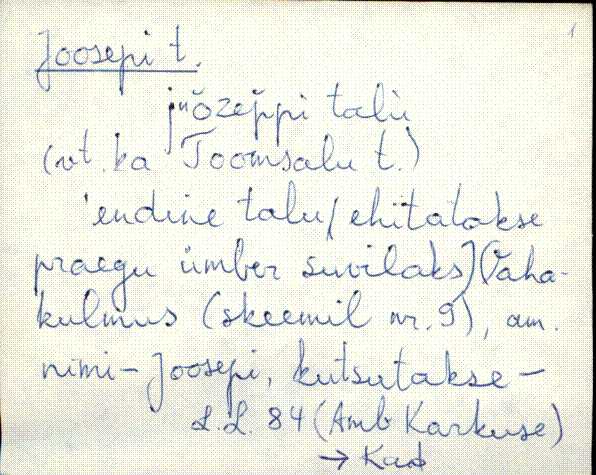 1
Joosepi t.
jüõzeppi talu
(vt. ka Toomsalu t.)
'endine talu/ehitatakse
praegu ümber suvilaks) Vaha-
kulmus (skeemil nr. 9), am.
nimi - Joosepi, kutsutakse -
L.L. 84 (Amb Karkuse)
→ Kad